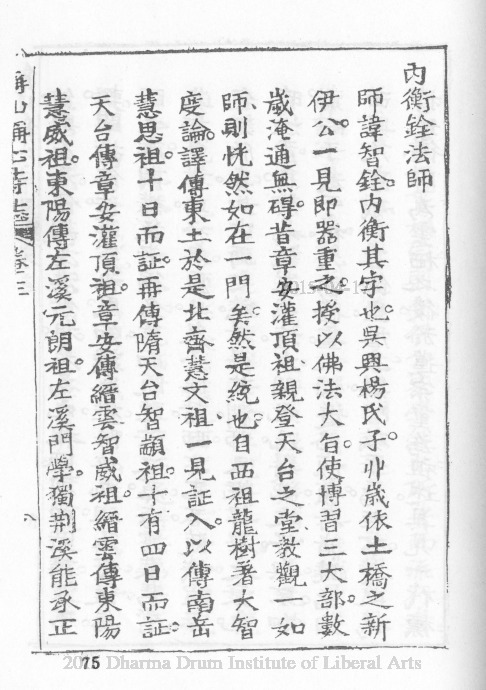 內衡銓法師
師諱智銓。內衡其字也。吳興楊氏子。丱歲依土橋之新
伊公。一見即器重之。授以佛法大旨。使博習三大部。數
歲淹通無礙。昔章安灌頂祖、親登天台之堂。教觀一如
師、則恍然如在一門矣。然是統也。自西祖龍樹著大智
度論。譯傳東土。於是北齊慧文祖、一見証入。以傳南岳
慧思祖。十日而証。再傳隋天台智顗祖。十有四日而証。
天台傳章安灌頂祖。章安傳縉雲智威祖。縉雲傳東陽
慧威祖。東陽傳左溪元朗祖。左溪門學。獨荆溪能承正
卷三
八
75
2015 Dharma Drum Institute of Liberal Arts